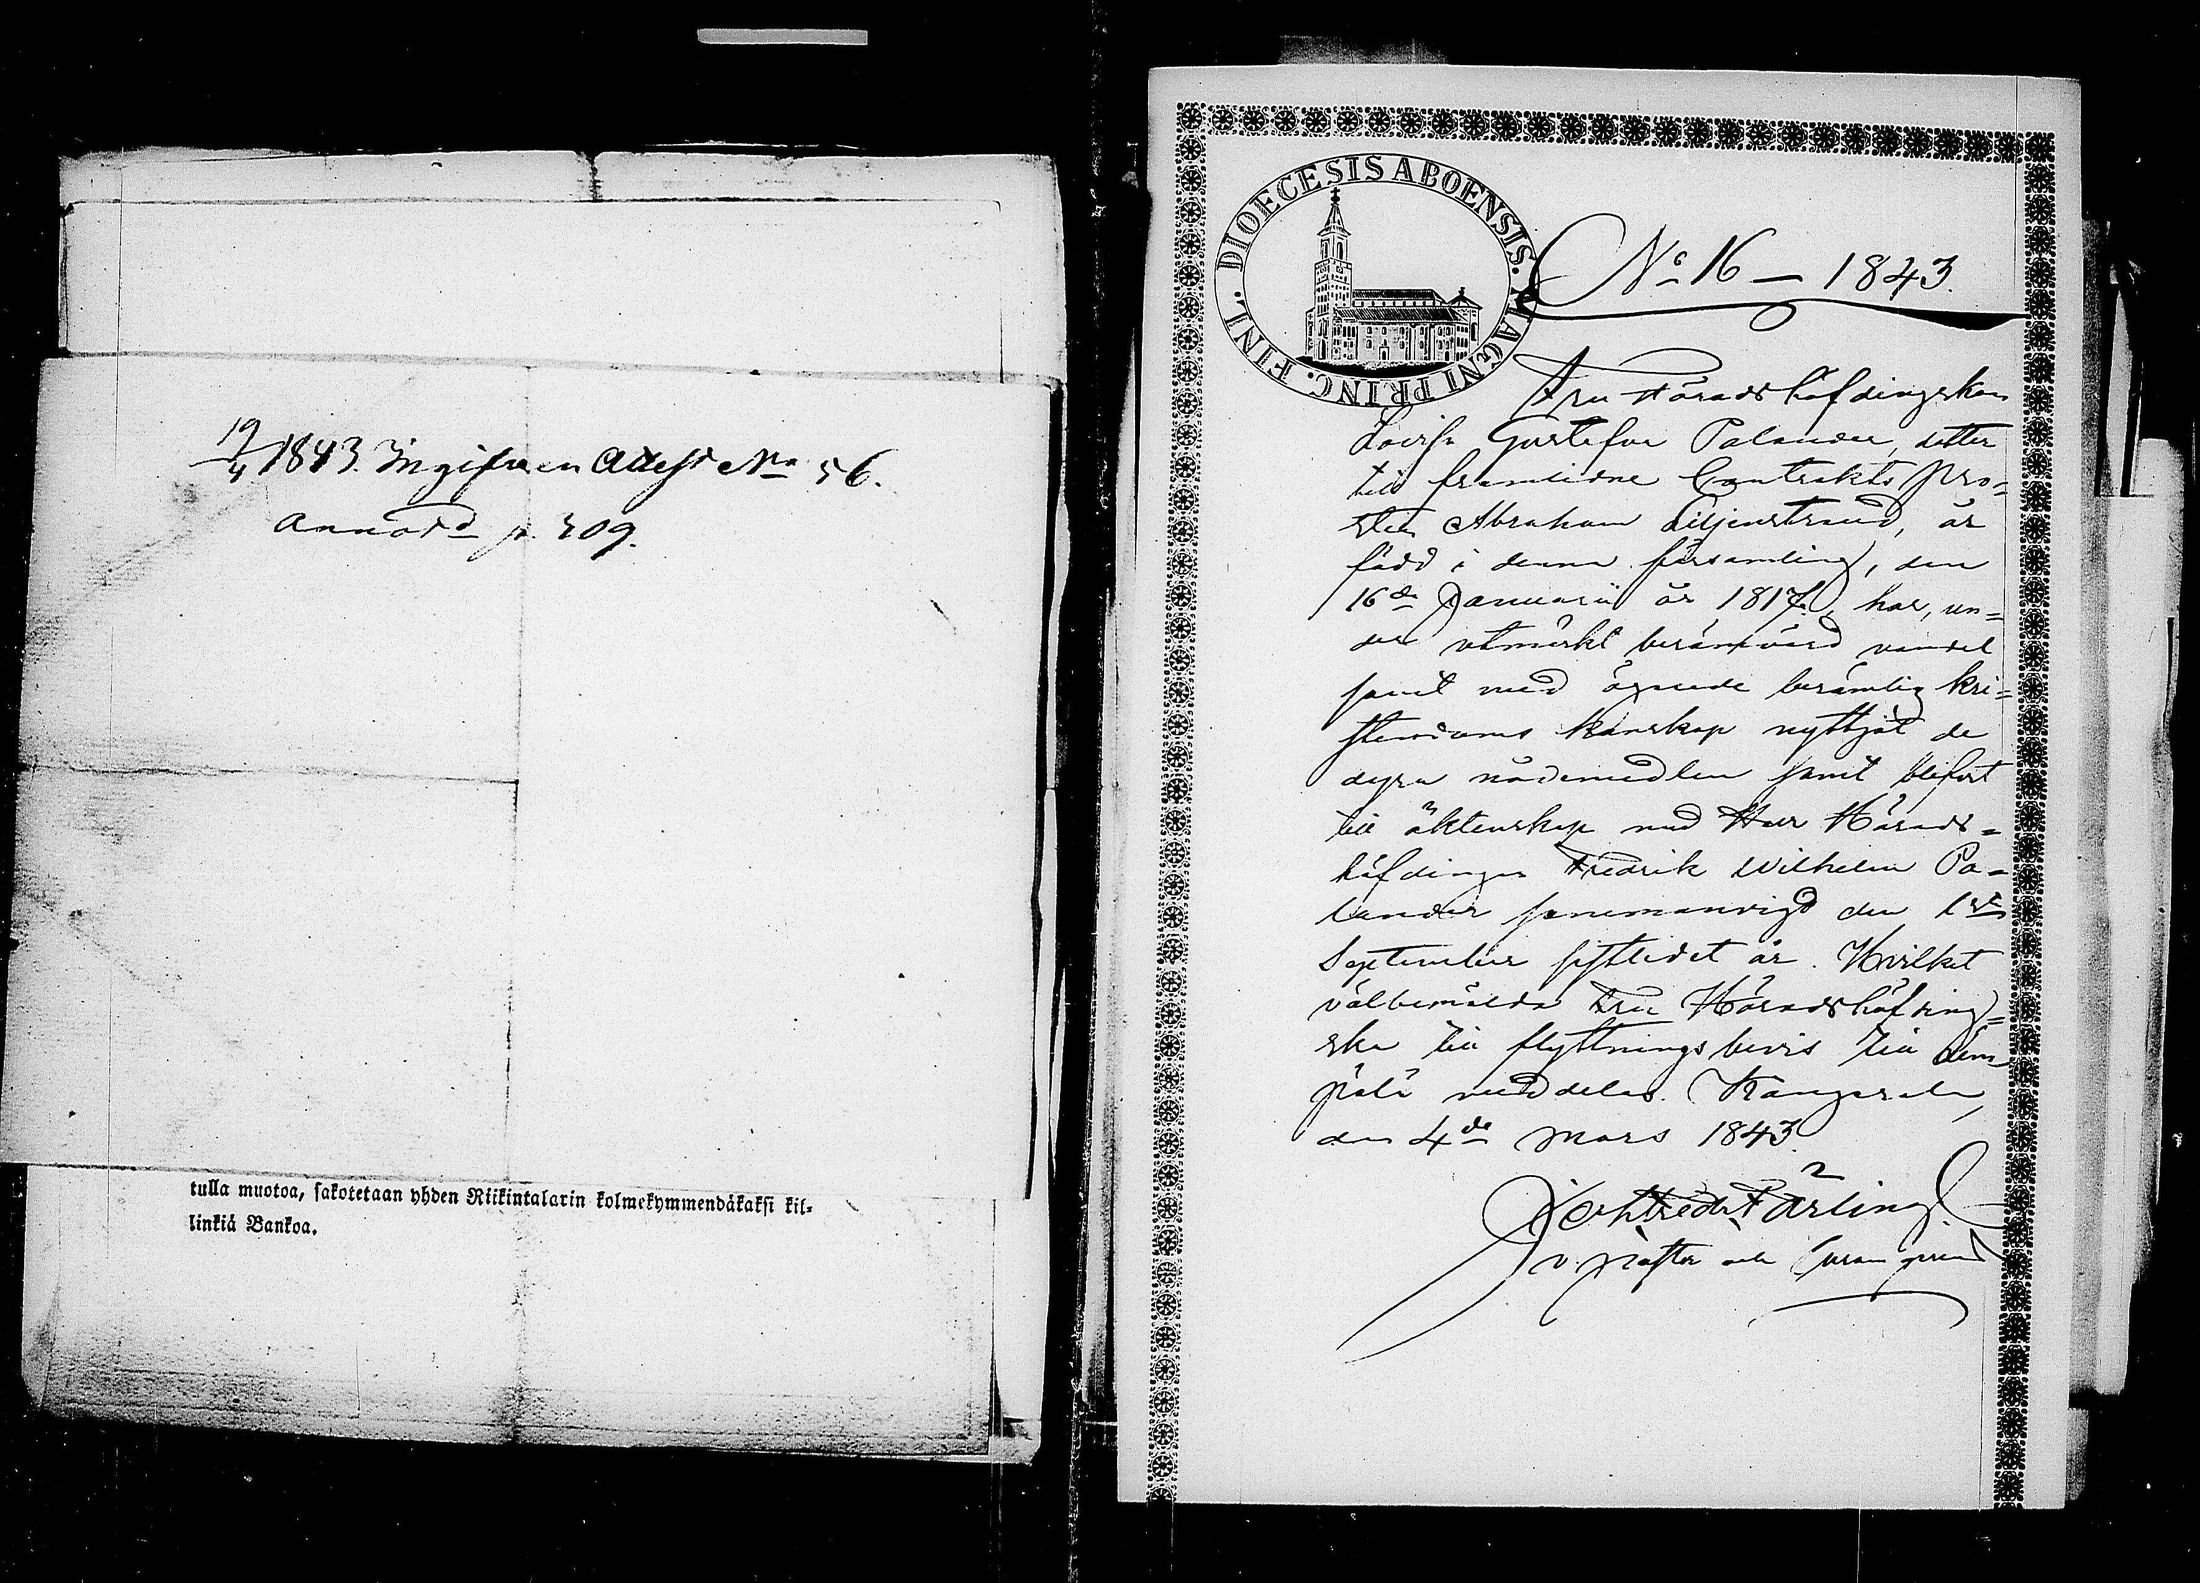 19/4 1843. Ingifven Attest No 56.
Annoterd p. 309.
tulla muotoa, sakotetaan yhden Riikintalarin kolmekymmendäkaksi kil-
linkiä Bankoa.
DIOECESIS ABOENSIS. MAGNI PRINC. FINL.
No 16 – 1843.
Fru Häradshöfdingskan
Lovisa Gustafva Palander, dotter
till framlidne Contrakts Pro-
sten Abraham Liljenstrand, är
född i denna församling, den
16de Januarii år 1817, har, un-
der utmärkt berömvärd vandel
samt med ägande berömlig kri-
stendoms kunskap nyttjat de
dyra nådemedlen samt blifvit
till äktenskap med Herr Härads-
höfdingen Fredrik Wilhelm Pa-
lander sammanvigd den 1sta
September sistledet år. Hvilket
välbemälda Fru Häradshöfding-
ska till flyttningsbevis till Jäm-
pälä meddelas. Kangasala,
den 4de Mars 1843
Färling
v. pastor och